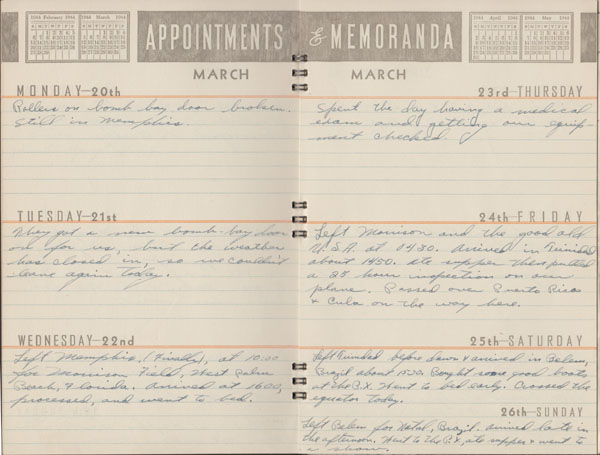 1944 February 1944
1944 March 1944
APPOINTMENTS & MEMORANDA
1944 April 1944
1944 May 1944
MARCH
MARCH
MONDAY—20th
Rollers on bomb bay door broken.
Still in Memphis.
TUESDAY—21st
They got a new bomb-bay door
on for us, but the weather
has closed in, so we couldn't
leave again today.
WEDNESDAY—22nd
Left Memphis, (Finally), at 10:00
for Morrison Field, West Palm
Beach, Florida. Arrived at 1600,
processed, and went to bed.
23rd—THURSDAY
Spent the day having a medical
exam and getting our equip-
ment checked.
24th—FRIDAY
Left Morrison and the good old
U.S.A. at 0430. Arrived in Trinidad
about 1430. Ate supper then pulled
a 25 hour inspection on our
plane. Passed over Puerto Rico
& Cuba on the way here.
25th—SATURDAY
Left Trinidad before dawn & arrived in Belem,
Brazil about 1530. Bought some good boots
at the P.X. Went to bed early. Crossed the
equator today.
26th—SUNDAY
Left Belem for Natal, Brazil. Arrived late in
the afternoon. Went to the P.X, ate supper & went to
a show.